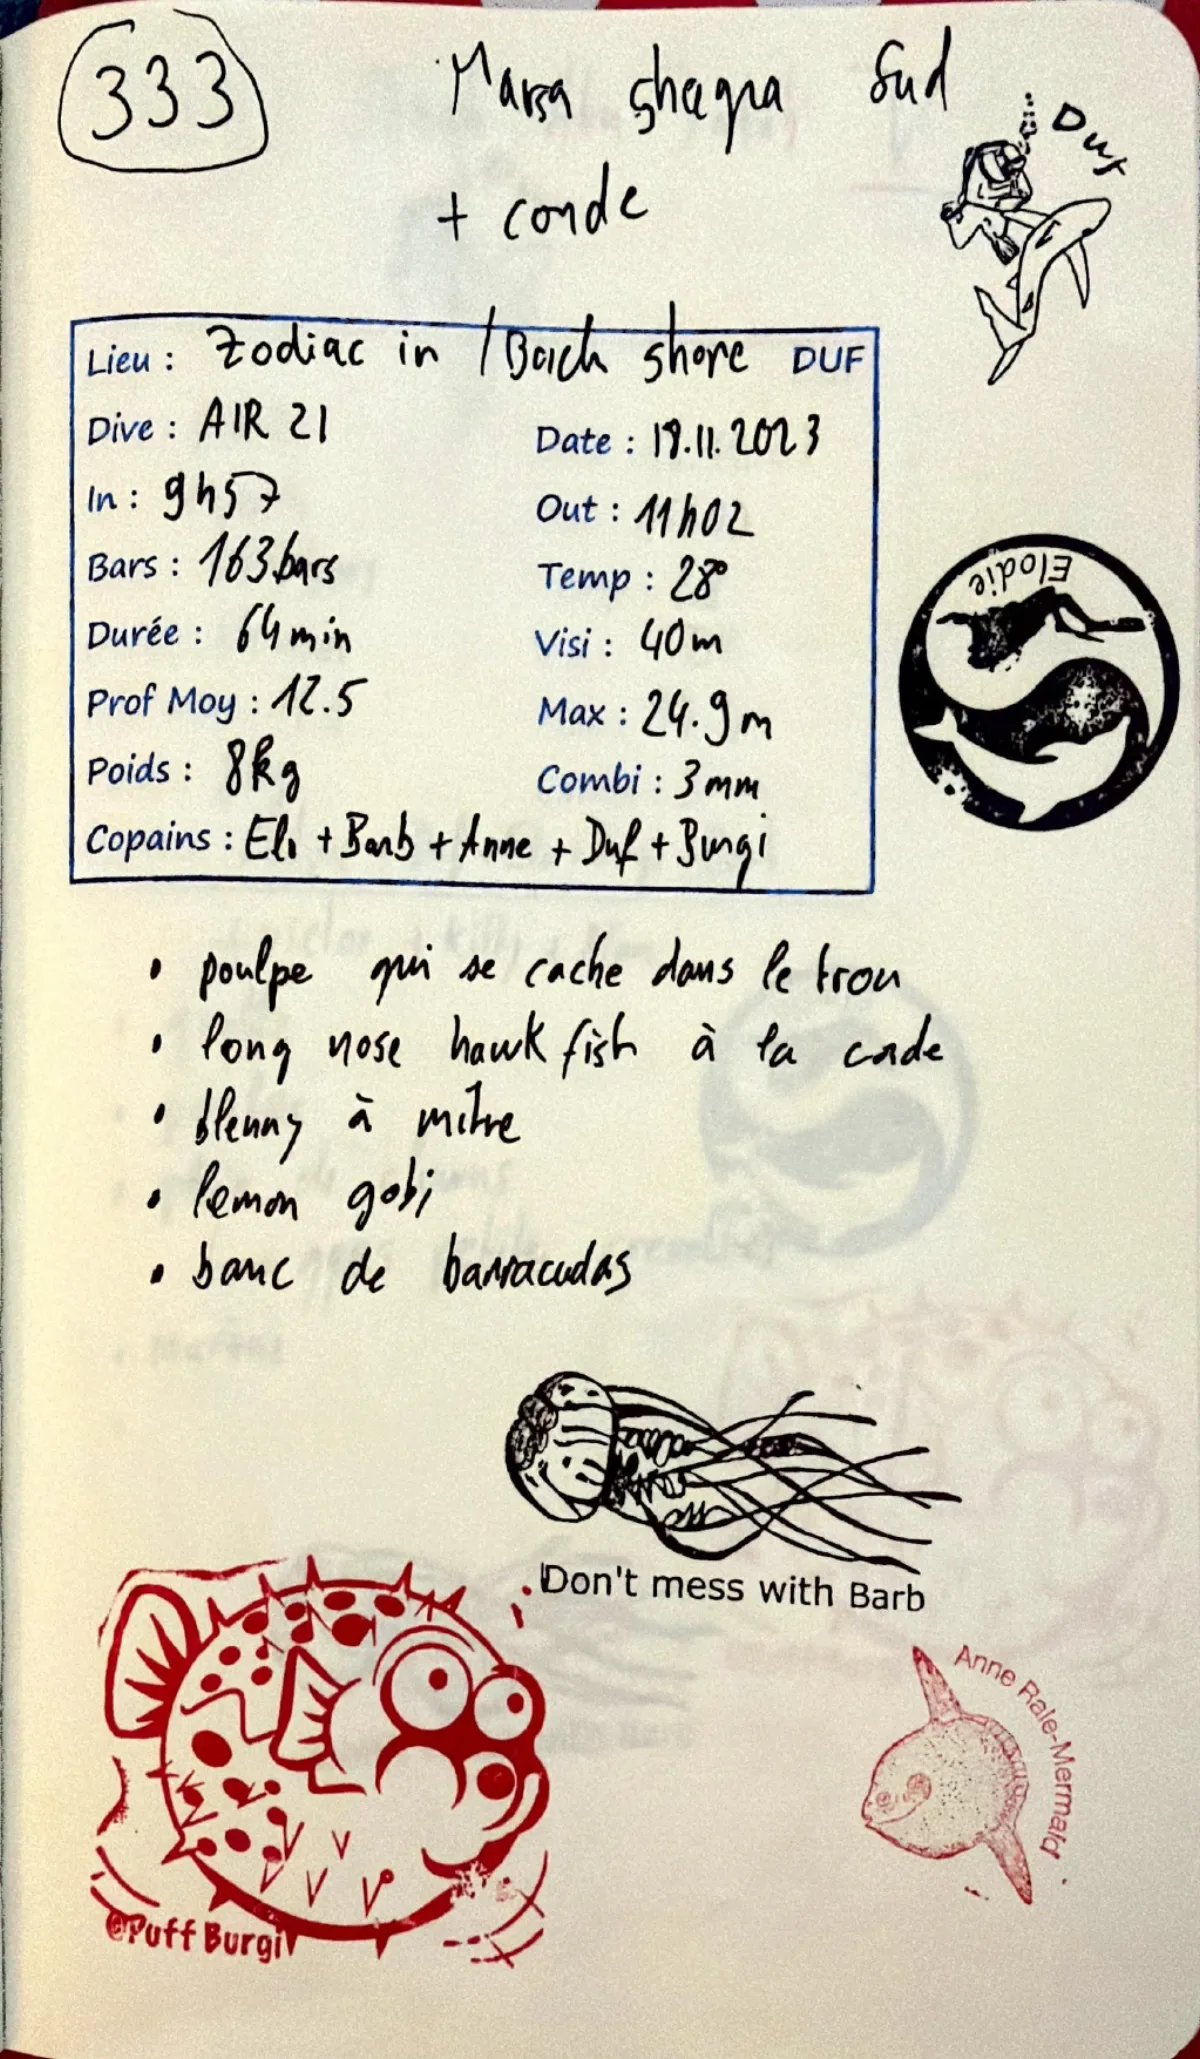 333
Marsa shagra Sud
Duf
+ corde
Lieu : Zodiac in / Back shore DUF
Dive : AIR 21
Date : 19.11.2023
In : 9h57
Out : 11h02
Bars : 163 bars
Temp : 28°
Elodie
Durée : 64 min
Visi : 40m
Prof Moy : 12.5
Max : 24.9 m
Poids : 8kg
Combi : 3 mm
Copains : Elo + Barb + Anne + Duf + Burgi
• poulpe qui se cache dans le trou
• long nose hawk fish à la corde
• blenny à mitre
• lemon gobi
• banc de barracudas
Don't mess with Barb
Anne Rale-Mermaid
@Puff Burgi